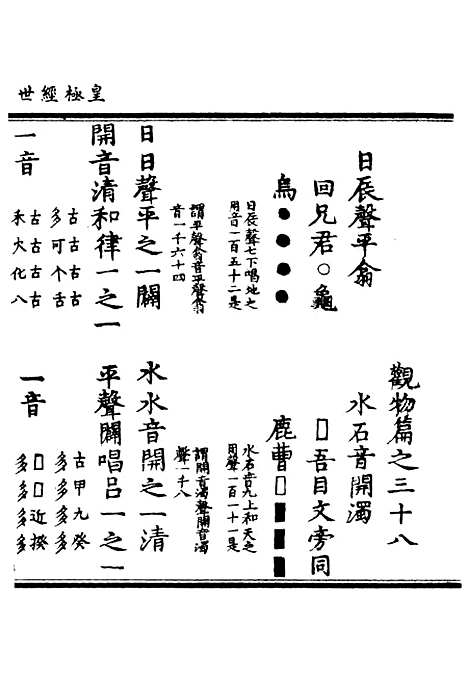 皇極經世
觀物篇之三十八
日辰聲平翕
水石音開濁
回兄君○龜
□吾目文旁同
烏●●●●
鹿曹□■■■
日辰聲七下唱地之
用音一百五十二是
水石音九上和天之
用聲一百一十一是
謂平聲翕音平聲翕
音一千六十四
謂開音濁聲開音濁
聲一千八
日日聲平之一闢
水水音開之一清
開音清和律一之一
平聲闢唱呂一之一
一音
古古古古
多可个舌
古古古古
禾火化八
一音
古甲九癸
多多多多
□□近揆
多多多多